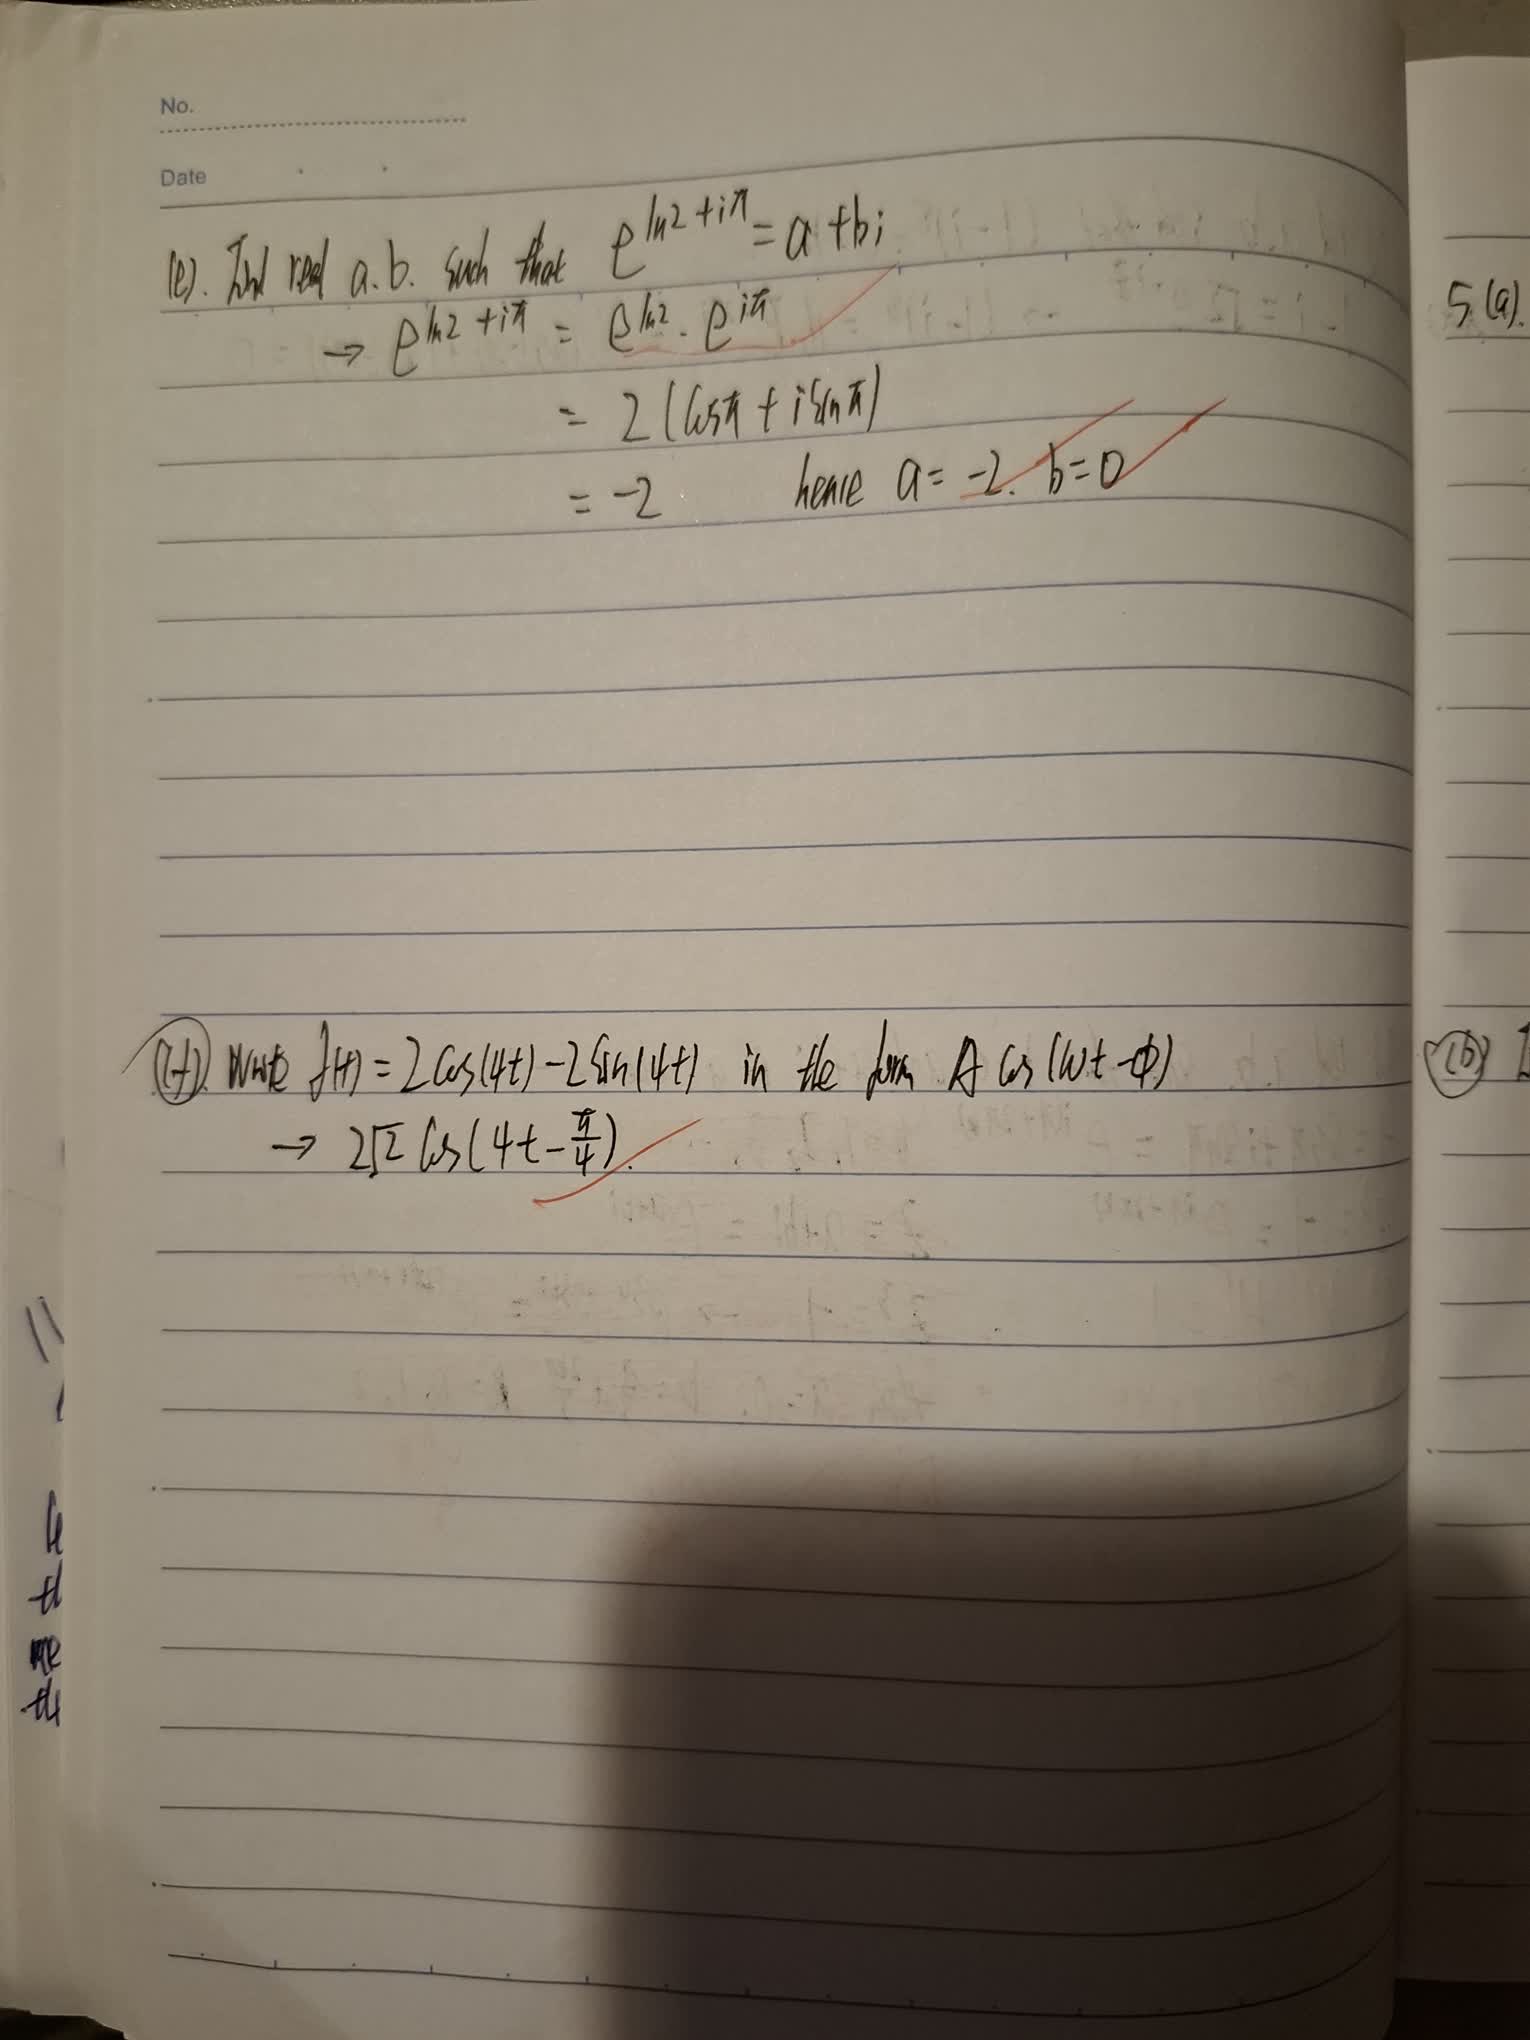 No.
Date
(e). Find real a.b. such that e^{ln2+iπ} = a+bi
→ e^{ln2+iπ} = e^{ln2} · e^{iπ}
= 2(Cosπ + iSinπ)
= -2 hence a = -2. b=0
(f). Write f(t) = 2Cos(4t) - 2Sin(4t) in the form A Cos(ωt-ϕ)
→ 2√2 Cos(4t - π/4).
5(a).
(b)